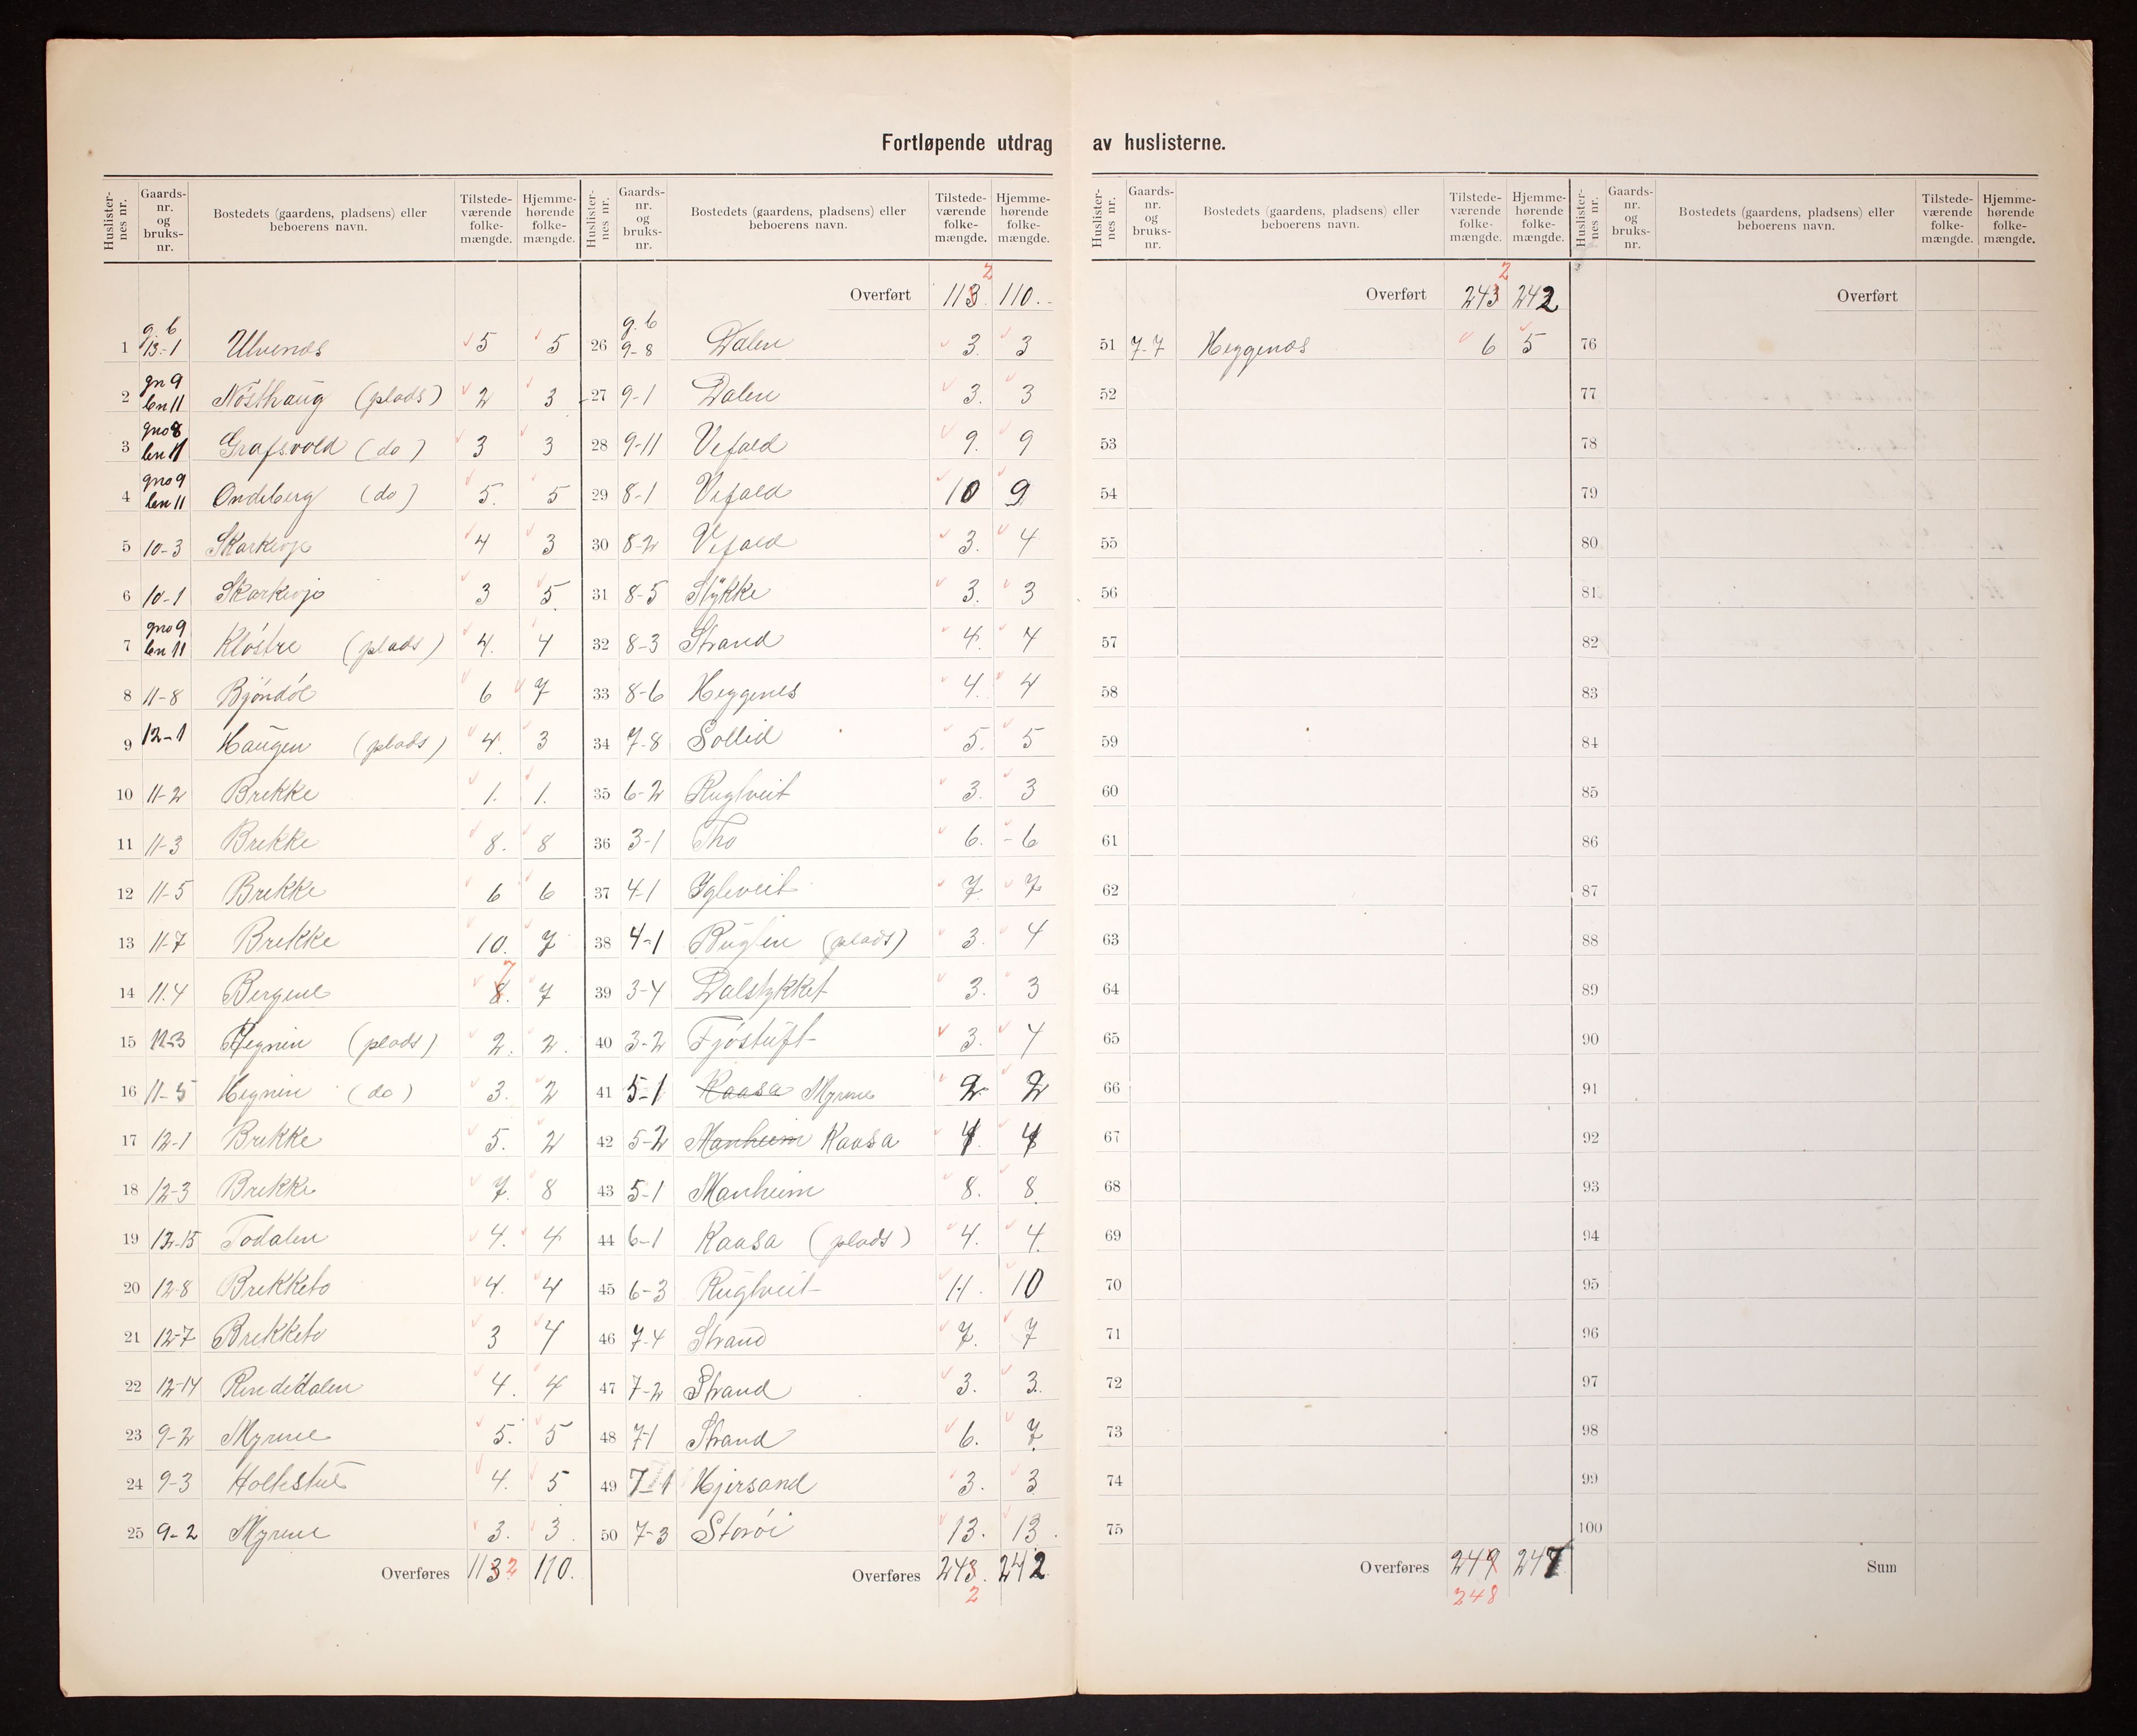 Fortløpende utdrag av huslisterne.
Huslisternes nr. Gaards-nr. og bruks-nr. Bostedets (gaardens, pladsens) eller beboerens navn. Tilstedeværende folkemængde. Hjemmehørende folkemængde.
g. 6
1 13-1 Ulvenes 5 5
2 gn 9 bn 11 Nösthaug (plads) 2 3
3 gno 8 bn 11 Grafsvold (do) 3 3
4 gno 9 bn 11 Ondeberg (do) 5. 5
5 10-3 Skarkeije 4 3
6 10-1 Skarkeije 3 5.
7 gno 9 bn 11 Klöstre (plads) 4. 4
8 11-8 Bjöndöl 6 7
9 12-1 Haugen (plads) 4. 3
10 11-2 Brekke 1. 1.
11 11-3 Brekke 8. 8
12 11-5 Brekke 6 6
13 11-7 Brekke 10. 7
14 11.4 Bergene 8. 7 7
15 11-3 Hegnin (plads) 2. 2.
16 11-5 Hegnin (do) 3. 2
17 12-1 Brekke 5. 2
18 12-3 Brekke 7. 8
19 12-15 Todalen 4. 4
20 12-8 Brekketo 4. 4
21 12-7 Brekketo 3 4
22 12-14 Rindedalen 4. 4
23 9-2 Myrene 5. 5
24 9-3 Holtestul 4. 5
25 9-2 Myrene 3. 3.
Overføres 113 2 110.
Huslisternes nr. Gaards-nr. og bruks-nr. Bostedets (gaardens, pladsens) eller beboerens navn. Tilstedeværende folkemængde. Hjemmehørende folkemængde.
Overført 113. 2 110.
g. 6
26 9-8 Dalen 3. 3
27 9-1 Dalen 3. 3
28 9-11 Vefald 9. 9
29 8-1 Vefald 10 9
30 8-2 Vefald 3. 4
31 8-5 Stykke 3. 3
32 8-3 Strand 4. 4
33 8-6 Heggenes 4. 4
34 7-8 Sollid 5. 5
35 6-2 Rugtveit 3. 3
36 3-1 Tho 6. 6
37 4-1 Igleveit 7. 7
38 4-1 (plads) 3. 4
39 3-4 Dalstykket 3. 3
40 3-2 Fjöstuft 3. 4
41 5-1 Kaasa Myrene 2. 2
42 5-2 Manheim Kaasa 4. 4
43 5-1 Manheim 8. 8.
44 6-1 Kaasa (plads) 4. 4.
45 6-3 Rugtveit 11. 10
46 7-4 Strand 7. 7
47 7-2 Strand 3. 3.
48 7-1 Strand 6. 7.
49 7-1 Hjersand 3. 3
50 7-3 Storöi 13. 13.
Overføres 243. 2 242
Huslisternes nr. Gaards-nr. og bruks-nr. Bostedets (gaardens, pladsens) eller beboerens navn. Tilstedeværende folkemængde. Hjemmehørende folkemængde.
Overført 243 2 242
51 7-7 Heggenes 6 5
52
53
54
55
56
57
58
59
60
61
62
63
64
65
66
67
68
69
70
71
72
73
74
75
Overføres 249 247
248
Huslisternes nr. Gaards-nr. og bruks-nr. Bostedets (gaardens, pladsens) eller beboerens navn. Tilstedeværende folkemængde. Hjemmehørende folkemængde.
Overført
76
77
78
79
80
81
82
83
84
85
86
87
88
89
90
91
92
93
94
95
96
97
98
99
100
Sum